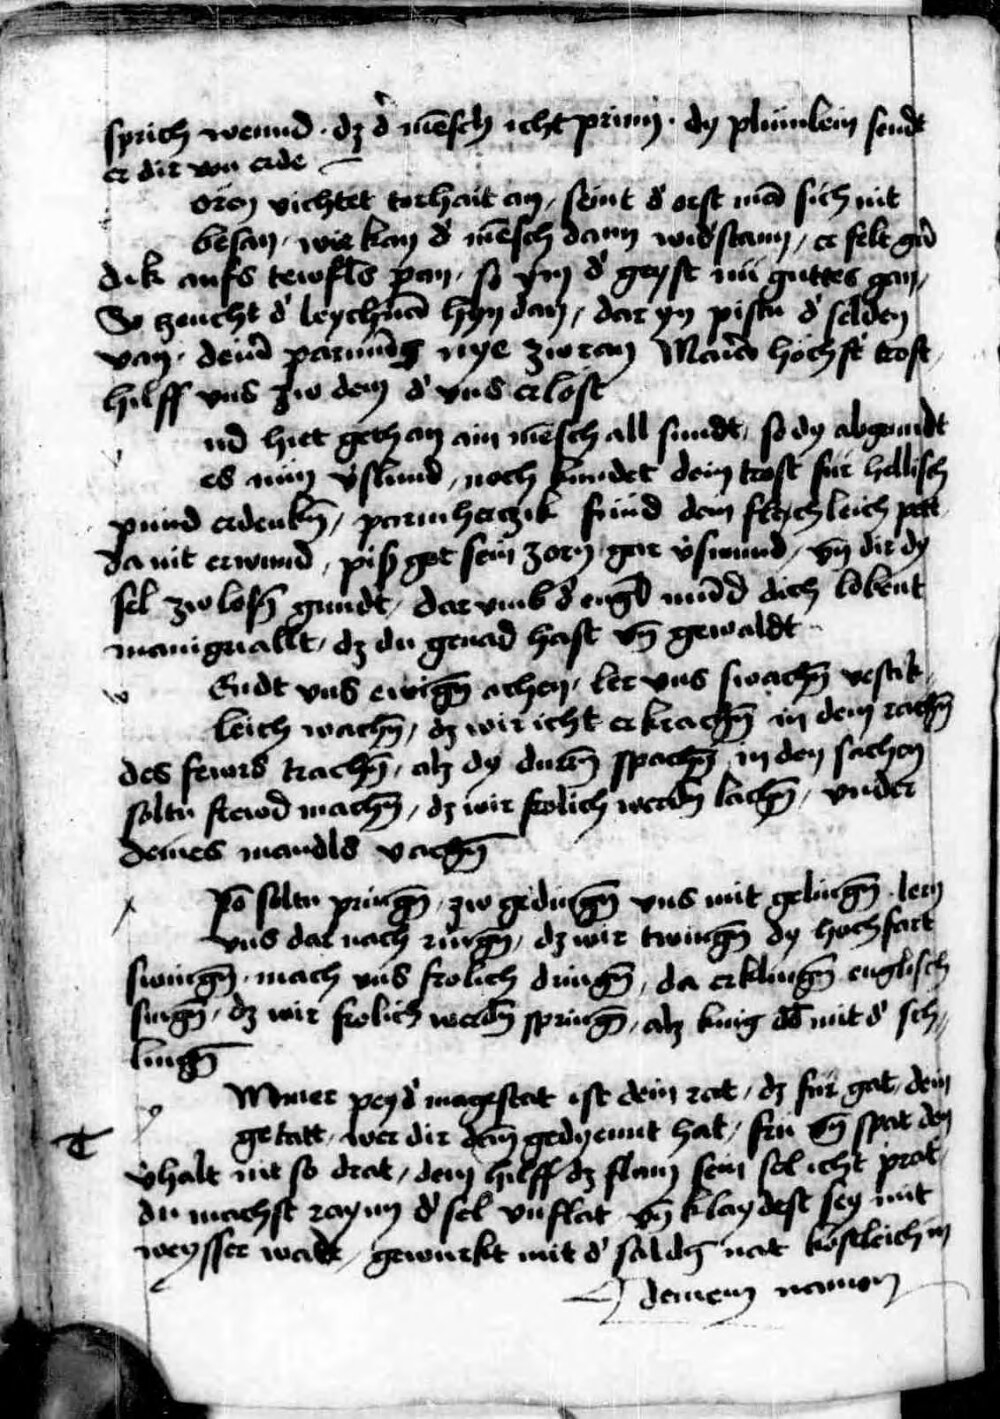 sprich wennd · dz d' mēsch icht prinn · dy plümlein sendt
er dir von erde
oren vichtet torhait an / seint d' erst mā sich nit
besan / wie kan d' mēsch dann wid'stann / er felt gār
dik aufs tewfls pan / so ym d' geyst nü guttes gan /
So zeucht d' leychnā hyn dan / dar yn pistu d' selden
van · deinē parmūg nye zwran Maria höchst' trost
hilff vns zw dem d' vns erlost
v nd hiet gethan ain mēsch all sundt / so dy abgrundt
es nün v'slund / noch kundet dein trost für hellisch
pünd erdenkn̄ / parmherczik fründ dein fleychleich pett
da nit erwund / piß got sein zorn gar v'swund / vn̄ dir dy
sel zw losn̄ gundt / dar vmb d' engl mūd dich lobent
maniguallt / dz du genad hast vn̄ gewaldt
w Endt vns ewign̄ achen / ler vns swachn̄ vestik
leich wachn̄ / dz wir icht erkrachn̄ in dem rachn̄
des fewrs trachn̄ / alz dy durrn̄ spachn̄ in den sachen
soltu frewd machn̄ / dz wir frolich werdn̄ lachn̄ / vnder
deines mandls vachn̄
x Po soltu pringn̄ / zw gedingn̄ vns mit gelingn̄ · lern
vns dar nach ringn̄ / dz wir twingn̄ dy hochfart
swingn̄ · mach vns frolich dringn̄ / da erklingn̄ englisch
singn̄ / dz wir frolich werdn̄ springn̄ / alz kunig dd mit d' sch-
lingn̄
Mmer pey d' magestat ist dein rat / dz für gat / dein
getatt / wer dir dan̄ gedyennt hat / fru vn̄ spat den
v'halt nit so drat / dem hilff dz flam sein sel icht prat /
du machst raynn d' sel vnflat vn̄ klaydest sey mit
weysser wadt / gewurkt mit d' saldn̄ nat kostleich in
deinem namen
T